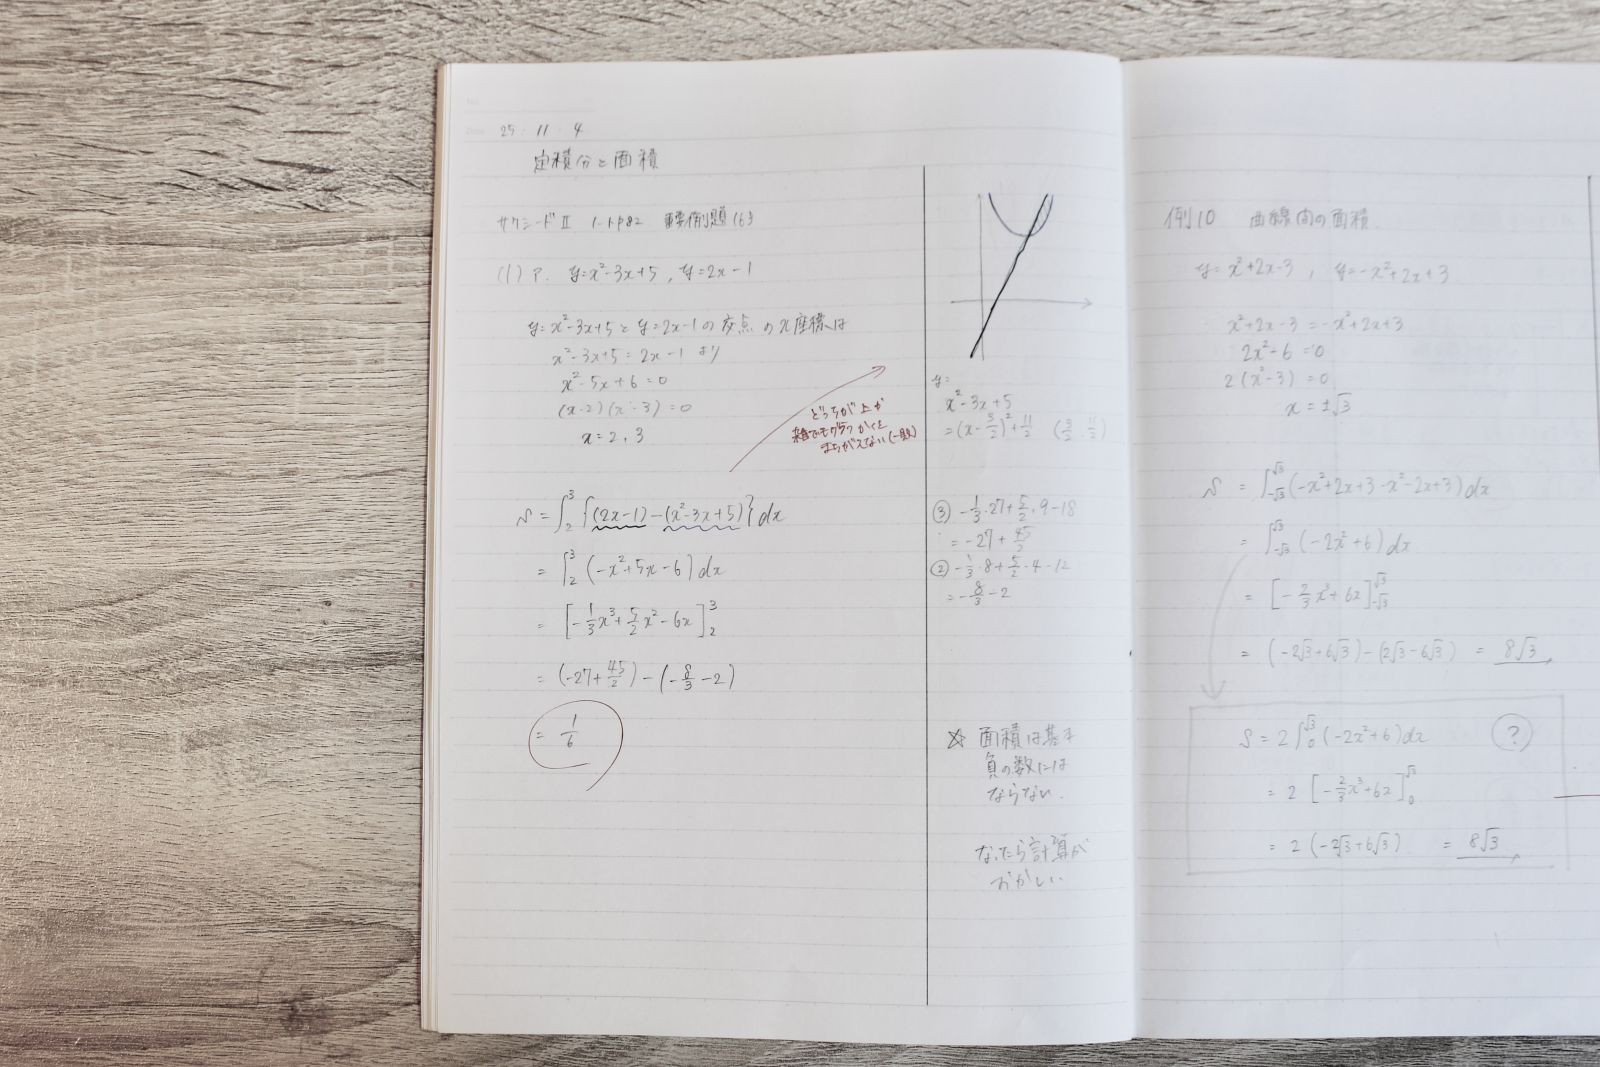 25・11・4
定積分と面積
サクシードⅡ 1-1 p82 重要例題163
(1) P. y=x²-3x+5, y=2x-1
y=x²-3x+5とy=2x-1の交点のx座標は
x²-3x+5=2x-1 より
x²-5x+6=0
(x-2)(x-3)=0
x=2,3
どっちが上か
雑でもグラフかくと
まちがえない
S=∫₂³{(2x-1)-(x²-3x+5)}dx
=∫₂³(-x²+5x-6)dx
=[-1/3x³+5/2x²-6x]₂³
=(-27+45/2)-(-8/3-2)
=1/6
y=
x²-3x+5
=(x-3/2)²+11/2 (3/2, 11/2)
③ -1/3・27+5/2・9-18
=-27+45/2
② -1/3・8+5/2・4-12
=-8/3-2
☆ 面積は基本
負の数には
ならない.
なったら計算が
おかしい
例10 曲線間の面積
y=x²+2x-3, y=-x²+2x+3
x²+2x-3=-x²+2x+3
2x²-6=0
2(x²-3)=0
x=±√3
S=∫_{-√3}^{√3}(-x²+2x+3-x²-2x+3)dx
=∫_{-√3}^{√3}(-2x²+6)dx
=[-2/3x³+6x]_{-√3}^{√3}
=(-2√3+6√3)-(2√3-6√3) =8√3
S=2∫₀^{√3}(-2x²+6)dx ?
=2[-2/3x³+6x]₀^{√3}
=2(-2√3+6√3) =8√3